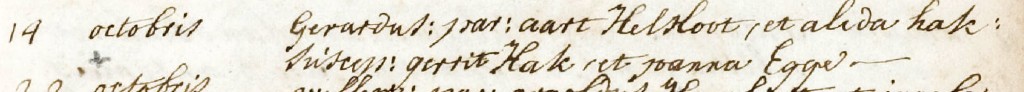 14 octobris Gerardus: par: aart Helsloot, et alida hak:
suscep: gerrit Hak, et joanna Egge
22 octobris